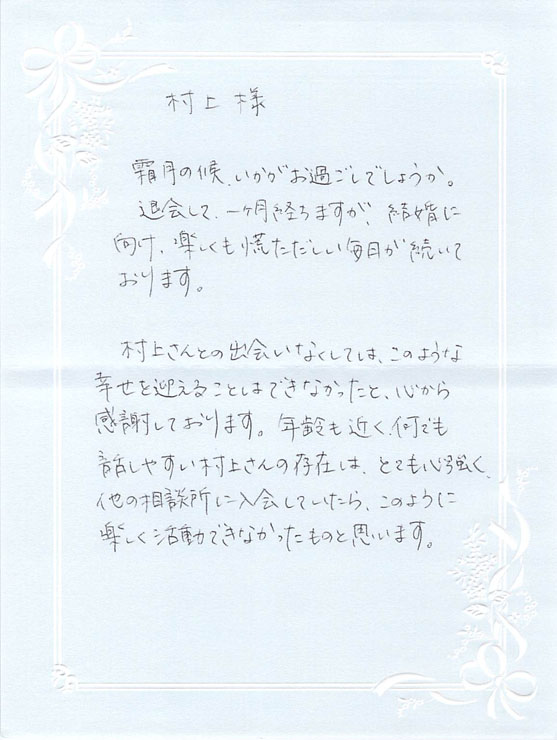 村上 様
霜月の候、いかがお過ごしでしょうか。
退会して、一ヶ月経ちますが、結婚に
向け、楽しくも慌ただしい毎日が続いて
おります。
村上さんとの出会いなくしては、このような
幸せを迎えることはできなかったと、心から
感謝しております。年齢も近く、何でも
話しやすい村上さんの存在は、とても心強く、
他の相談所に入会していたら、このように
楽しく活動できなかったものと思います。